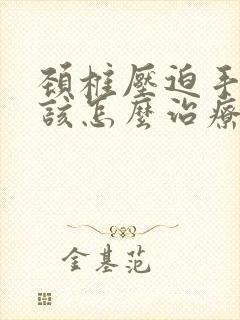 頚椎壓迫手
該怎麼治療
金基范